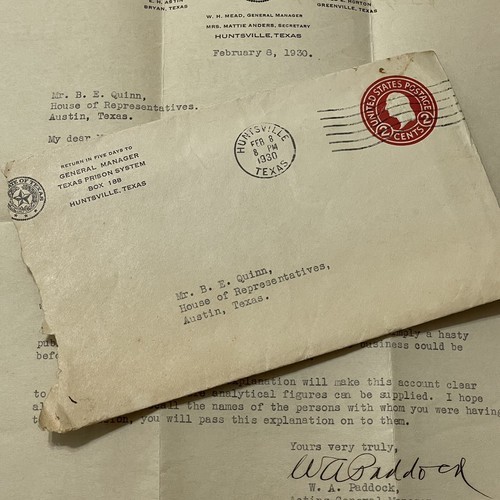 E. H. ASTIN
BRYAN, TEXAS
W. H. MEAD, GENERAL MANAGER
MRS. MATTIE ANDERS, SECRETARY
HUNTSVILLE, TEXAS
HORTON
GREENVILLE, TEXAS
February 8, 1930.
Mr. B. E. Quinn,
House of Representatives.
Austin, Texas.
My dear
RETURN IN FIVE DAYS TO
GENERAL MANAGER
TEXAS PRISON SYSTEM
BOX 188
HUNTSVILLE, TEXAS
HUNTSVILLE
FEB 8
8 PM
1930
TEXAS
UNITED STATES POSTAGE
2 CENTS 2
Mr. B. E. Quinn,
House of Representatives,
Austin, Texas.
a hasty
business could be
explanation will make this account clear
analytical figures can be supplied. I hope
the names of the persons with whom you were having
you will pass this explanation on to them.
Yours very truly,
W A Paddock
W. A. Paddock,